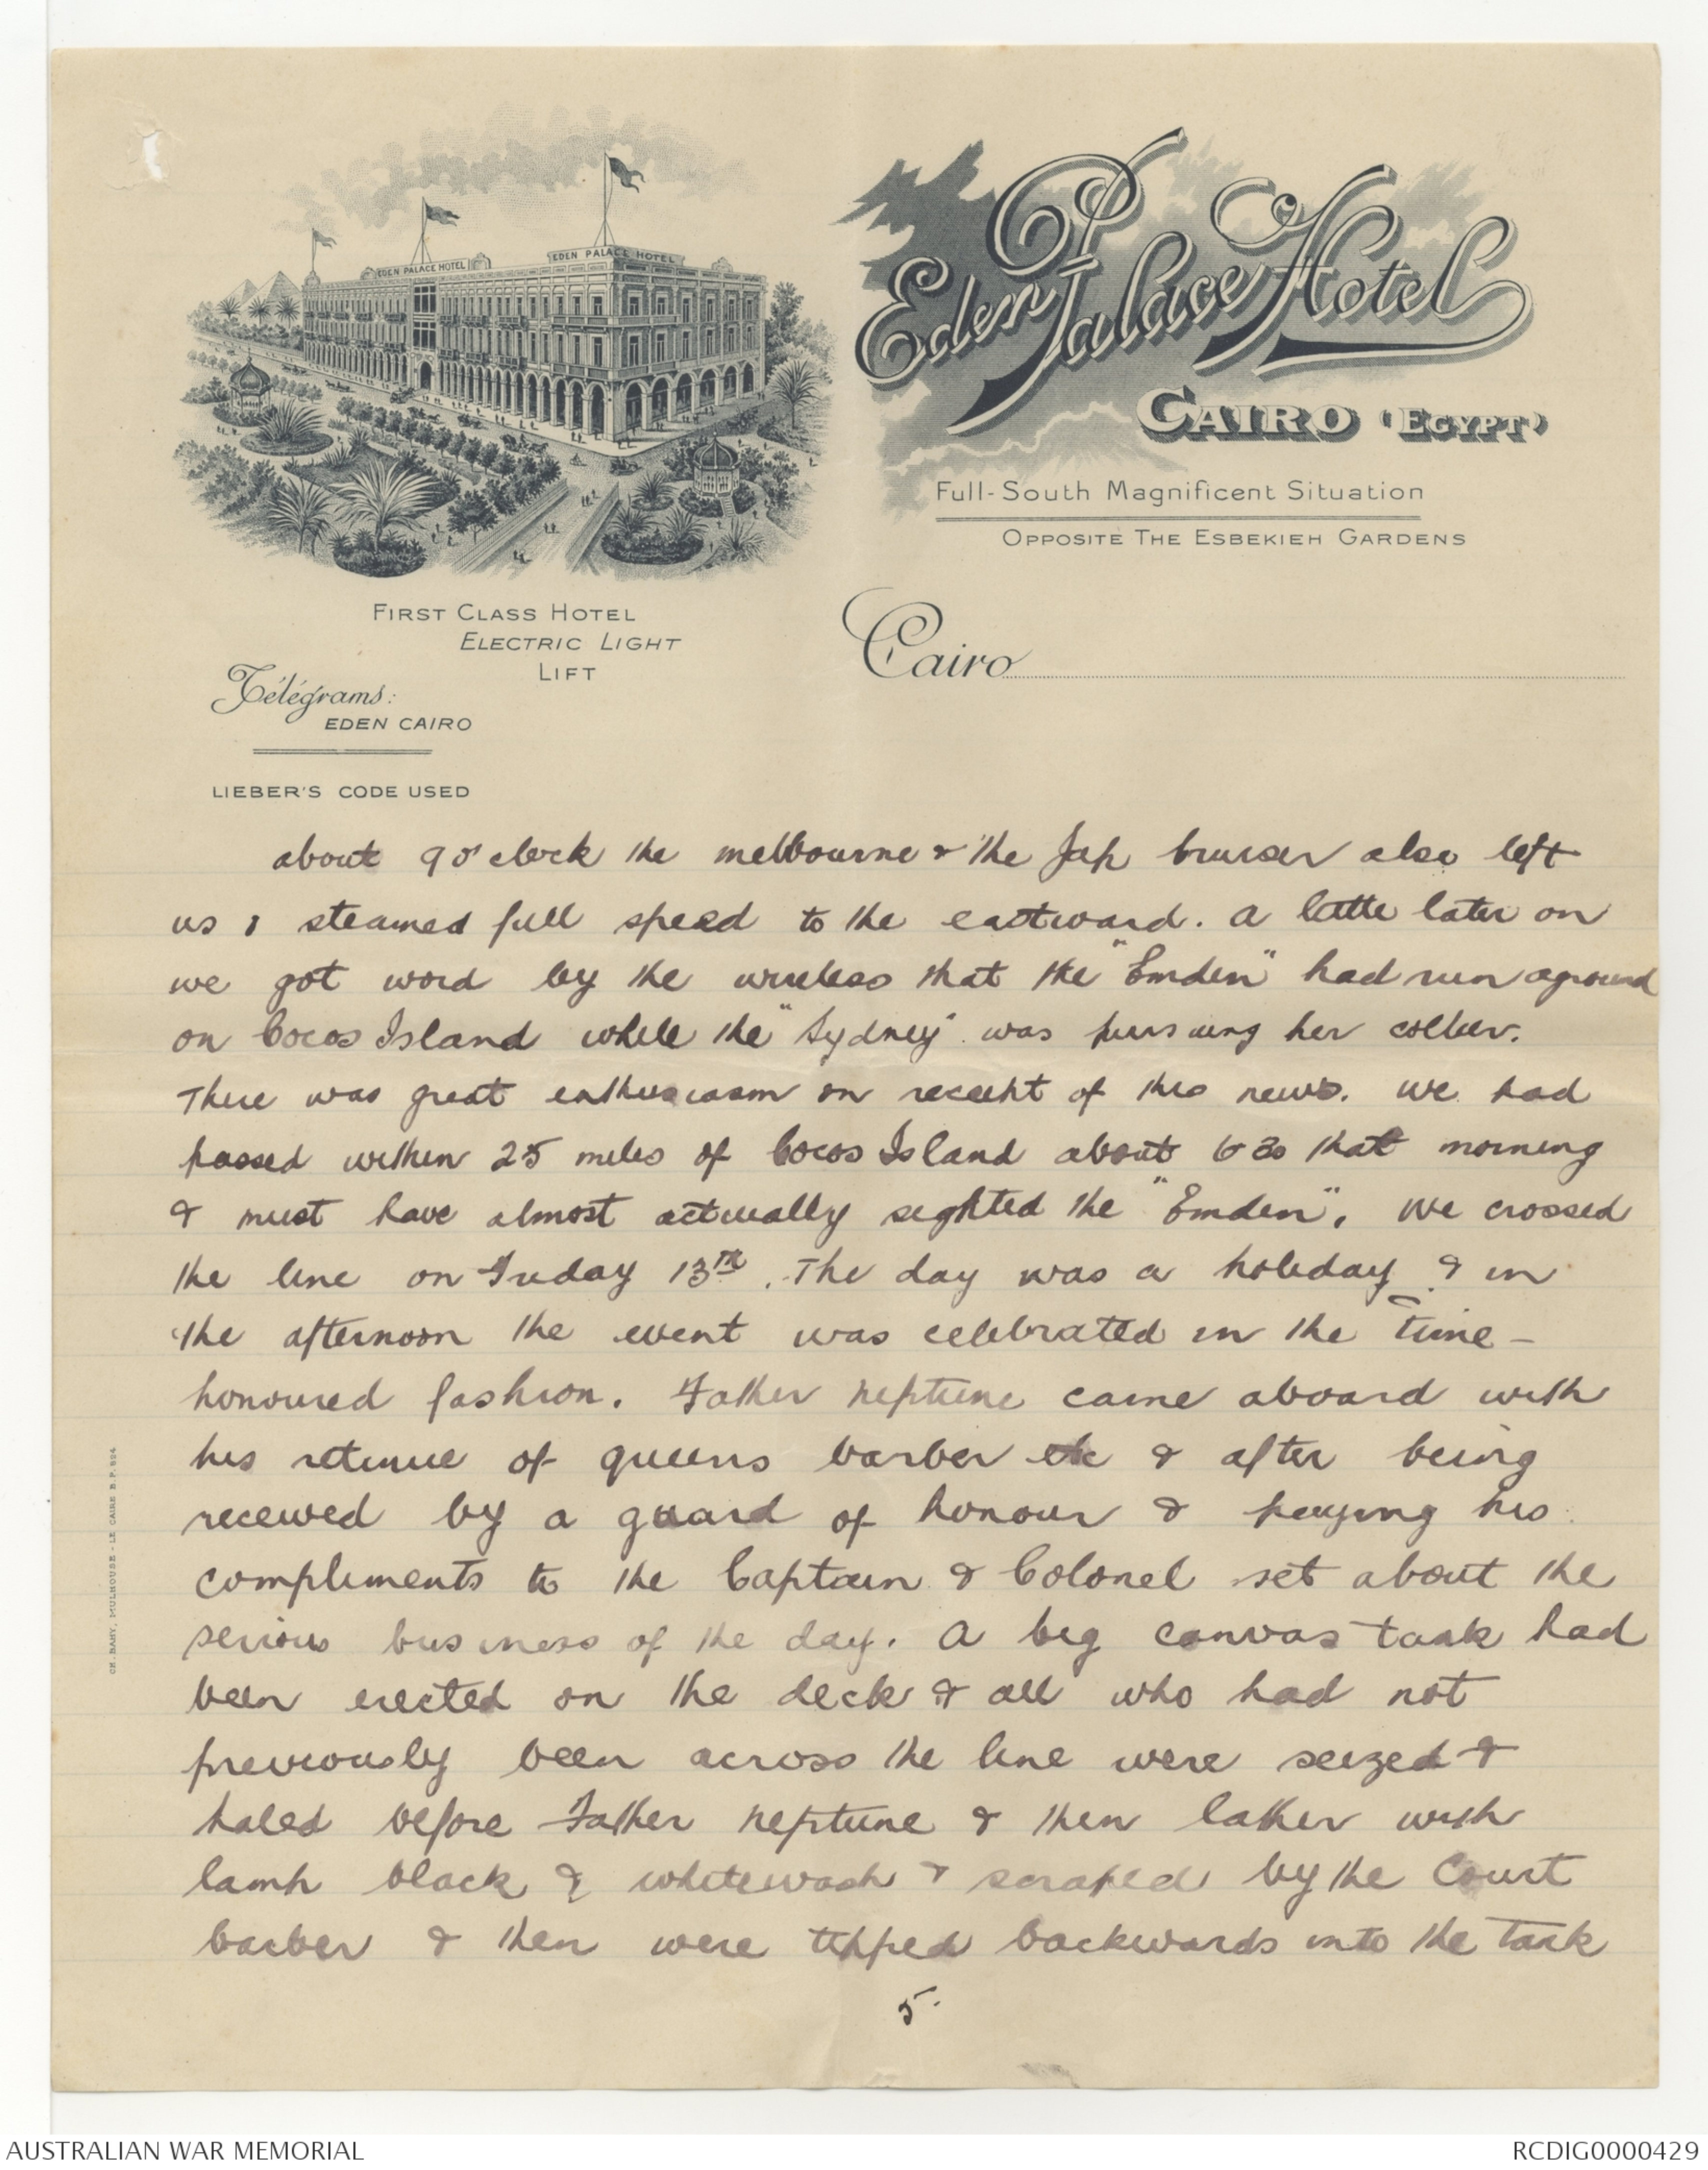 EDEN PALACE HOTEL
EDEN PALACE HOTEL
Eden Palace Hotel
CAIRO (EGYPT)
Full-South Magnificent Situation
OPPOSITE THE ESBEKIEH GARDENS
FIRST CLASS HOTEL
ELECTRIC LIGHT
LIFT
Télégrams:
EDEN CAIRO
LIEBER'S CODE USED
Cairo
about 9 o'clock the melbourne & the Jap cruiser also left
us & steamed full speed to the eastward. A little later on
we got word by the wireless that the "Emden" had run aground
on Cocos Island while the "Sydney" was pursuing her collier.
There was great enthusiasm on receipt of this news. We had
passed within 25 miles of Cocos Island about 6 30 that morning
& must have almost actually sighted the "Emden". We crossed
the line on Friday 13th. The day was a holiday & in
the afternoon the event was celebrated in the time-
honoured fashion. Father neptune came aboard with
his retinue of queens barber etc & after being
received by a guard of honour & paying his
compliments to the Captain & Colonel set about the
serious business of the day. A big canvas tank had
been erected on the deck & all who had not
previously been across the line were seized &
haled before Father neptune & then lather with
lamp black & whitewash & scraped by the Court
barber & then were tipped backwards into the tank
5.
CH. BAHY, MULHOUSE - LE CAIRE B.P. 924
AUSTRALIAN WAR MEMORIAL
RCDIG0000429